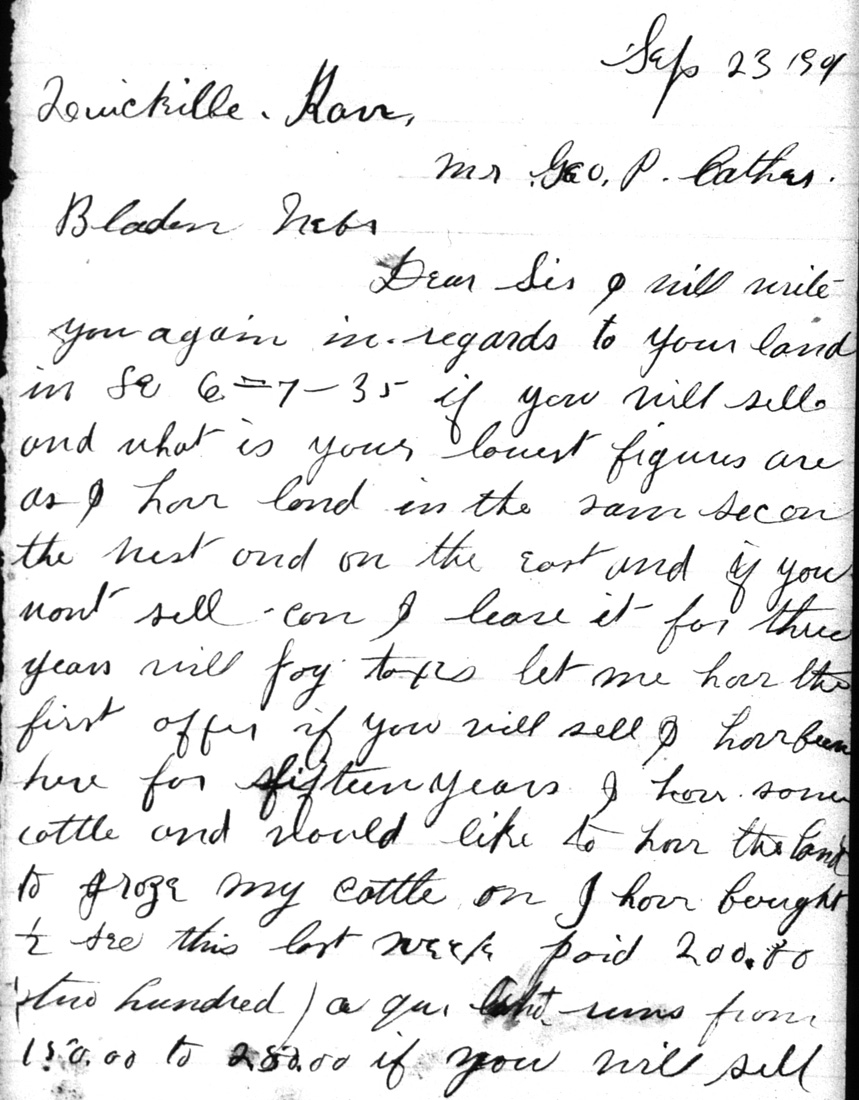 Sep 23 190
Kan,
Mr Geo. P. Cather.
Bladen Nebr
Dear Sir I will write
you again in regards to your land
in SE 6=7-35 if you will sell
and what is your lowest figures are
as I hav land in the sam sec on
the west and on the east and if you
wont sell can I lease it for three
years will pay taxes let me hav the
first offer if you will sell I hav been
here for fifteen years I hav some
cattle and would like to hav the land
to graze my cattle on I hav bought
½ sec this last week paid 200.00
two hundred) a qur runs from
150.00 to 250.00 if you will sell